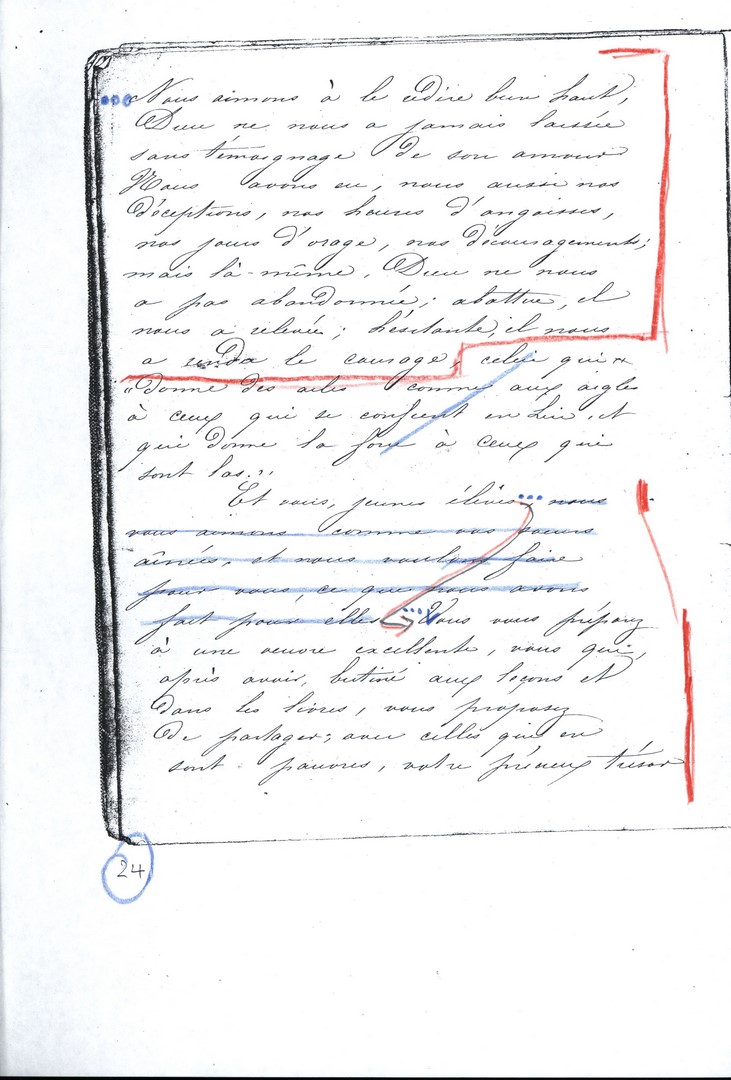 Nous aimons à le redire bien haut,
Dieu ne nous a jamais laissée
sans témoignage de son amour
Nous avons eu, nous aussi nos
déceptions, nos heures d'angoisses,
nos jours d'orage, nos découragements;
mais là-même, Dieu ne nous
a pas abandonnée; abattue, il
nous a relevée; hésitante, il nous
a rendu le courage, celui qui
"donne des ailes comme aux aigles
à ceux qui se confient en Lui, et
qui donne la force à ceux qui
sont las."
Et vous, jeunes élèves, nous
vous aimons comme vos soeurs
aînées, et nous voulons faire
pour vous, ce que nous avons
fait pour elles. Vous vous préparez
à une oeuvre excellente, vous qui,
après avoir, butiné aux leçons et
dans les livres, vous proposez
de partager, avec celles qui en
sont pauvres, votre précieux trésor
24